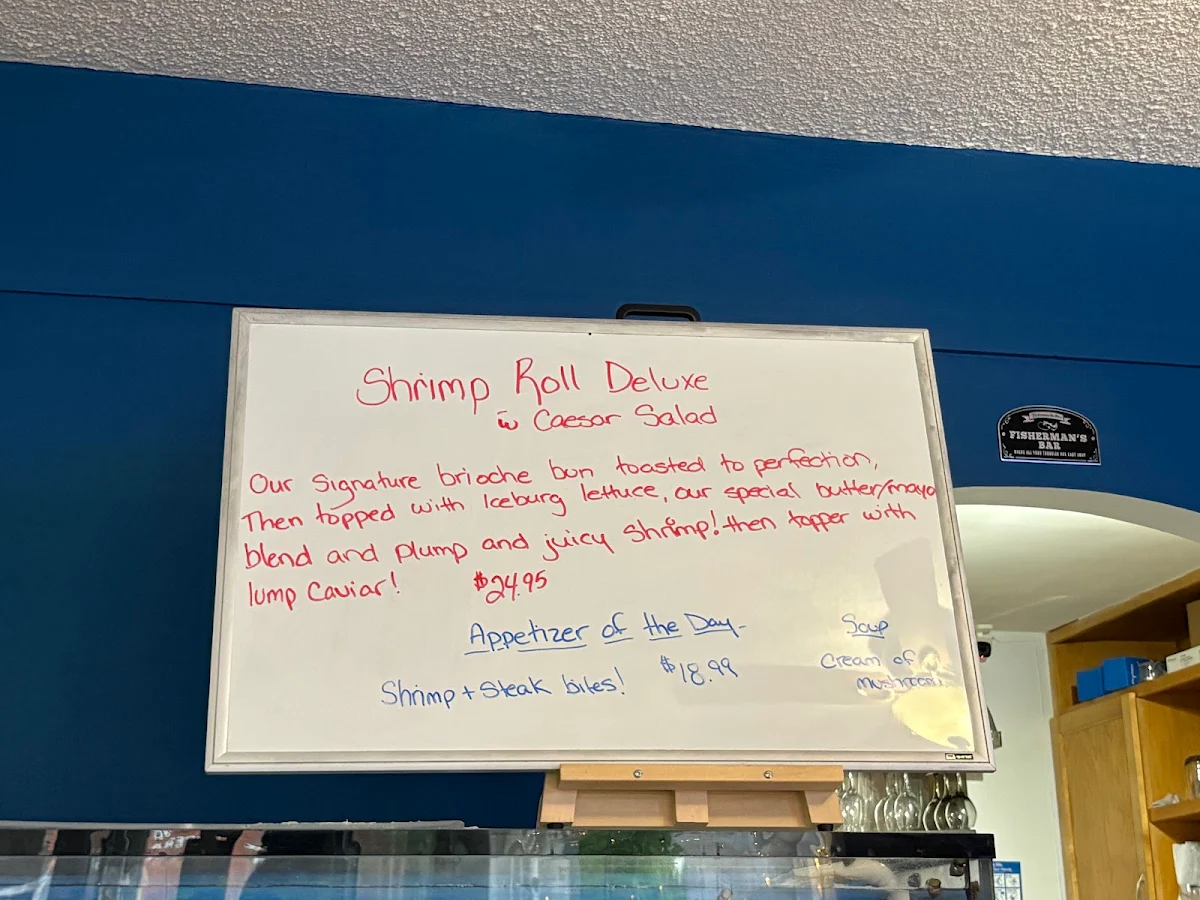 Shrimp Roll Deluxe
w Caesar Salad
Our Signature brioche bun toasted to perfection,
Then topped with Iceburg lettuce, our special butter/mayo
blend and plump and juicy shrimp! then topper with
lump Caviar! $24.95
Appetizer of the Day-
Shrimp + Steak bites! $18.99
Soup
Cream of
mushroom
FISHERMAN'S
BAR